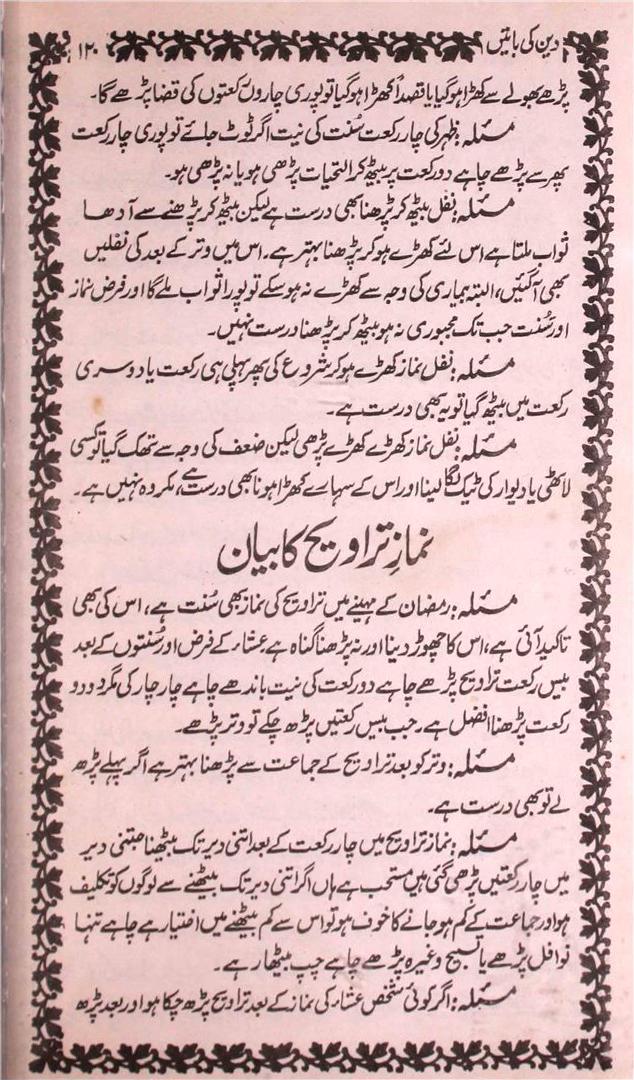 دین کی باتیں ۱۲۰
پڑھے بھولے سے کھڑا ہو گیا یا قصداً کھڑا ہو گیا تو پوری چاروں رکعتوں کی قضا پڑھے گا۔
مسئلہ: ظہر کی چار رکعت سُنت کی نیت اگر ٹوٹ جائے تو پوری چار رکعت
پھر سے پڑھے چاہے دو رکعت پر بیٹھ کر التحیات پڑھی ہو یا نہ پڑھی ہو۔
مسئلہ: نفل بیٹھ کر پڑھنا بھی درست ہے لیکن بیٹھ کر پڑھنے سے آدھا
ثواب ملتا ہے اس لئے کھڑے ہو کر پڑھنا بہتر ہے۔ اس میں وتر کے بعد کی نفلیں
بھی آ گئیں، البتہ بیماری کی وجہ سے کھڑے نہ ہو سکے تو پورا ثواب ملے گا اور فرض نماز
اور سُنت جب تک مجبوری نہ ہو بیٹھ کر پڑھنا درست نہیں۔
مسئلہ: نفل نماز کھڑے ہو کر شروع کی پھر پہلی ہی رکعت یا دوسری
رکعت میں بیٹھ گیا تو یہ بھی درست ہے۔
مسئلہ: نفل نماز کھڑے کھڑے پڑھی لیکن ضعف کی وجہ سے تھک گیا تو کسی
لاٹھی یا دیوار کی ٹیک لگا لینا اور اس کے سہارے کھڑا ہونا بھی درست ہے، مکروہ نہیں ہے۔
نمازِ تراویح کا بیان
مسئلہ: رمضان کے مہینے میں تراویح کی نماز بھی سُنت ہے، اس کی بھی
تاکید آئی ہے، اس کا چھوڑ دینا اور نہ پڑھنا گناہ ہے عشاء کے فرض اور سُنتوں کے بعد
بیس رکعت تراویح پڑھے چاہے دو رکعت کی نیت باندھے چاہے چار چار کی مگر دو دو
رکعت پڑھنا افضل ہے۔ جب بیس رکعتیں پڑھ چکے تو وتر پڑھے۔
مسئلہ: وتر کو بعد تراویح کے جماعت سے پڑھنا بہتر ہے اگر پہلے پڑھ
لے تو بھی درست ہے۔
مسئلہ: نماز تراویح میں چار رکعت کے بعد اتنی دیر تک بیٹھنا جتنی دیر
میں چار رکعتیں پڑھی گئی ہیں مستحب ہے ہاں اگر اتنی دیر تک بیٹھنے سے لوگوں کو تکلیف
ہو اور جماعت کے کم ہو جانے کا خوف ہو تو اس سے کم بیٹھنے میں اختیار ہے چاہے تنہا
نوافل پڑھے یا تسبیح وغیرہ پڑھے چاہے چپ بیٹھا رہے۔
مسئلہ: اگر کوئی شخص عشاء کی نماز کے بعد تراویح پڑھ چکا ہو اور بعد پڑھ